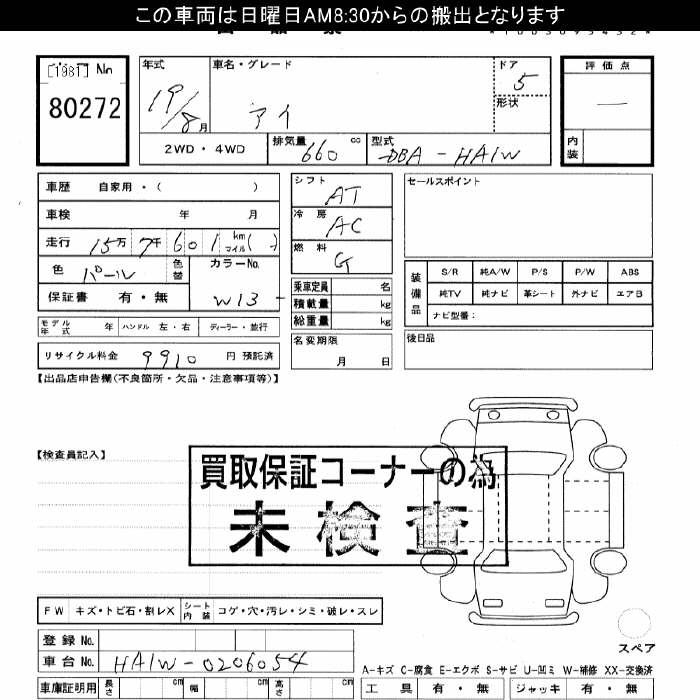 この車両は日曜日AM8:30からの搬出となります
[1981] No
80272
年式
19/8月
車名・グレード
アイ
ドア
5
形状
評価点
—
内装
2WD・4WD
排気量
660 cc
型式
DBA-HA1W
車歴 自家用・( )
車検 年 月
走行 15万7千601 km マイル( )
色 パール
色替
カラーNo.
W13
保証書 有・無
モデル年式 年
ハンドル 左・右
ディーラー・並行
リサイクル料金 9910 円 預託済
シフト
AT
冷房
AC
燃料
G
乗車定員 名
積載量 kg
総重量 kg
名変期限
月 日
セールスポイント
装備品
S/R 純A/W P/S P/W ABS
純TV 純ナビ 革シート 外ナビ エアB
ナビ型番:
後日品
【出品店申告欄(不良箇所・欠品・注意事項等)】
【検査員記入】
買取保証コーナーの為
未検査
FW キズ・トビ石・割レX
シート内装 コゲ・穴・汚レ・シミ・破レ・スレ
登録 No.
車台 No. HA1W-0206054
車庫証明用 長さ cm 幅 cm 高さ cm
スペア
A-キズ C-腐食 E-エクボ S-サビ U-凹ミ W-補修 XX-交換済
工具 有・無 ジャッキ 有・無